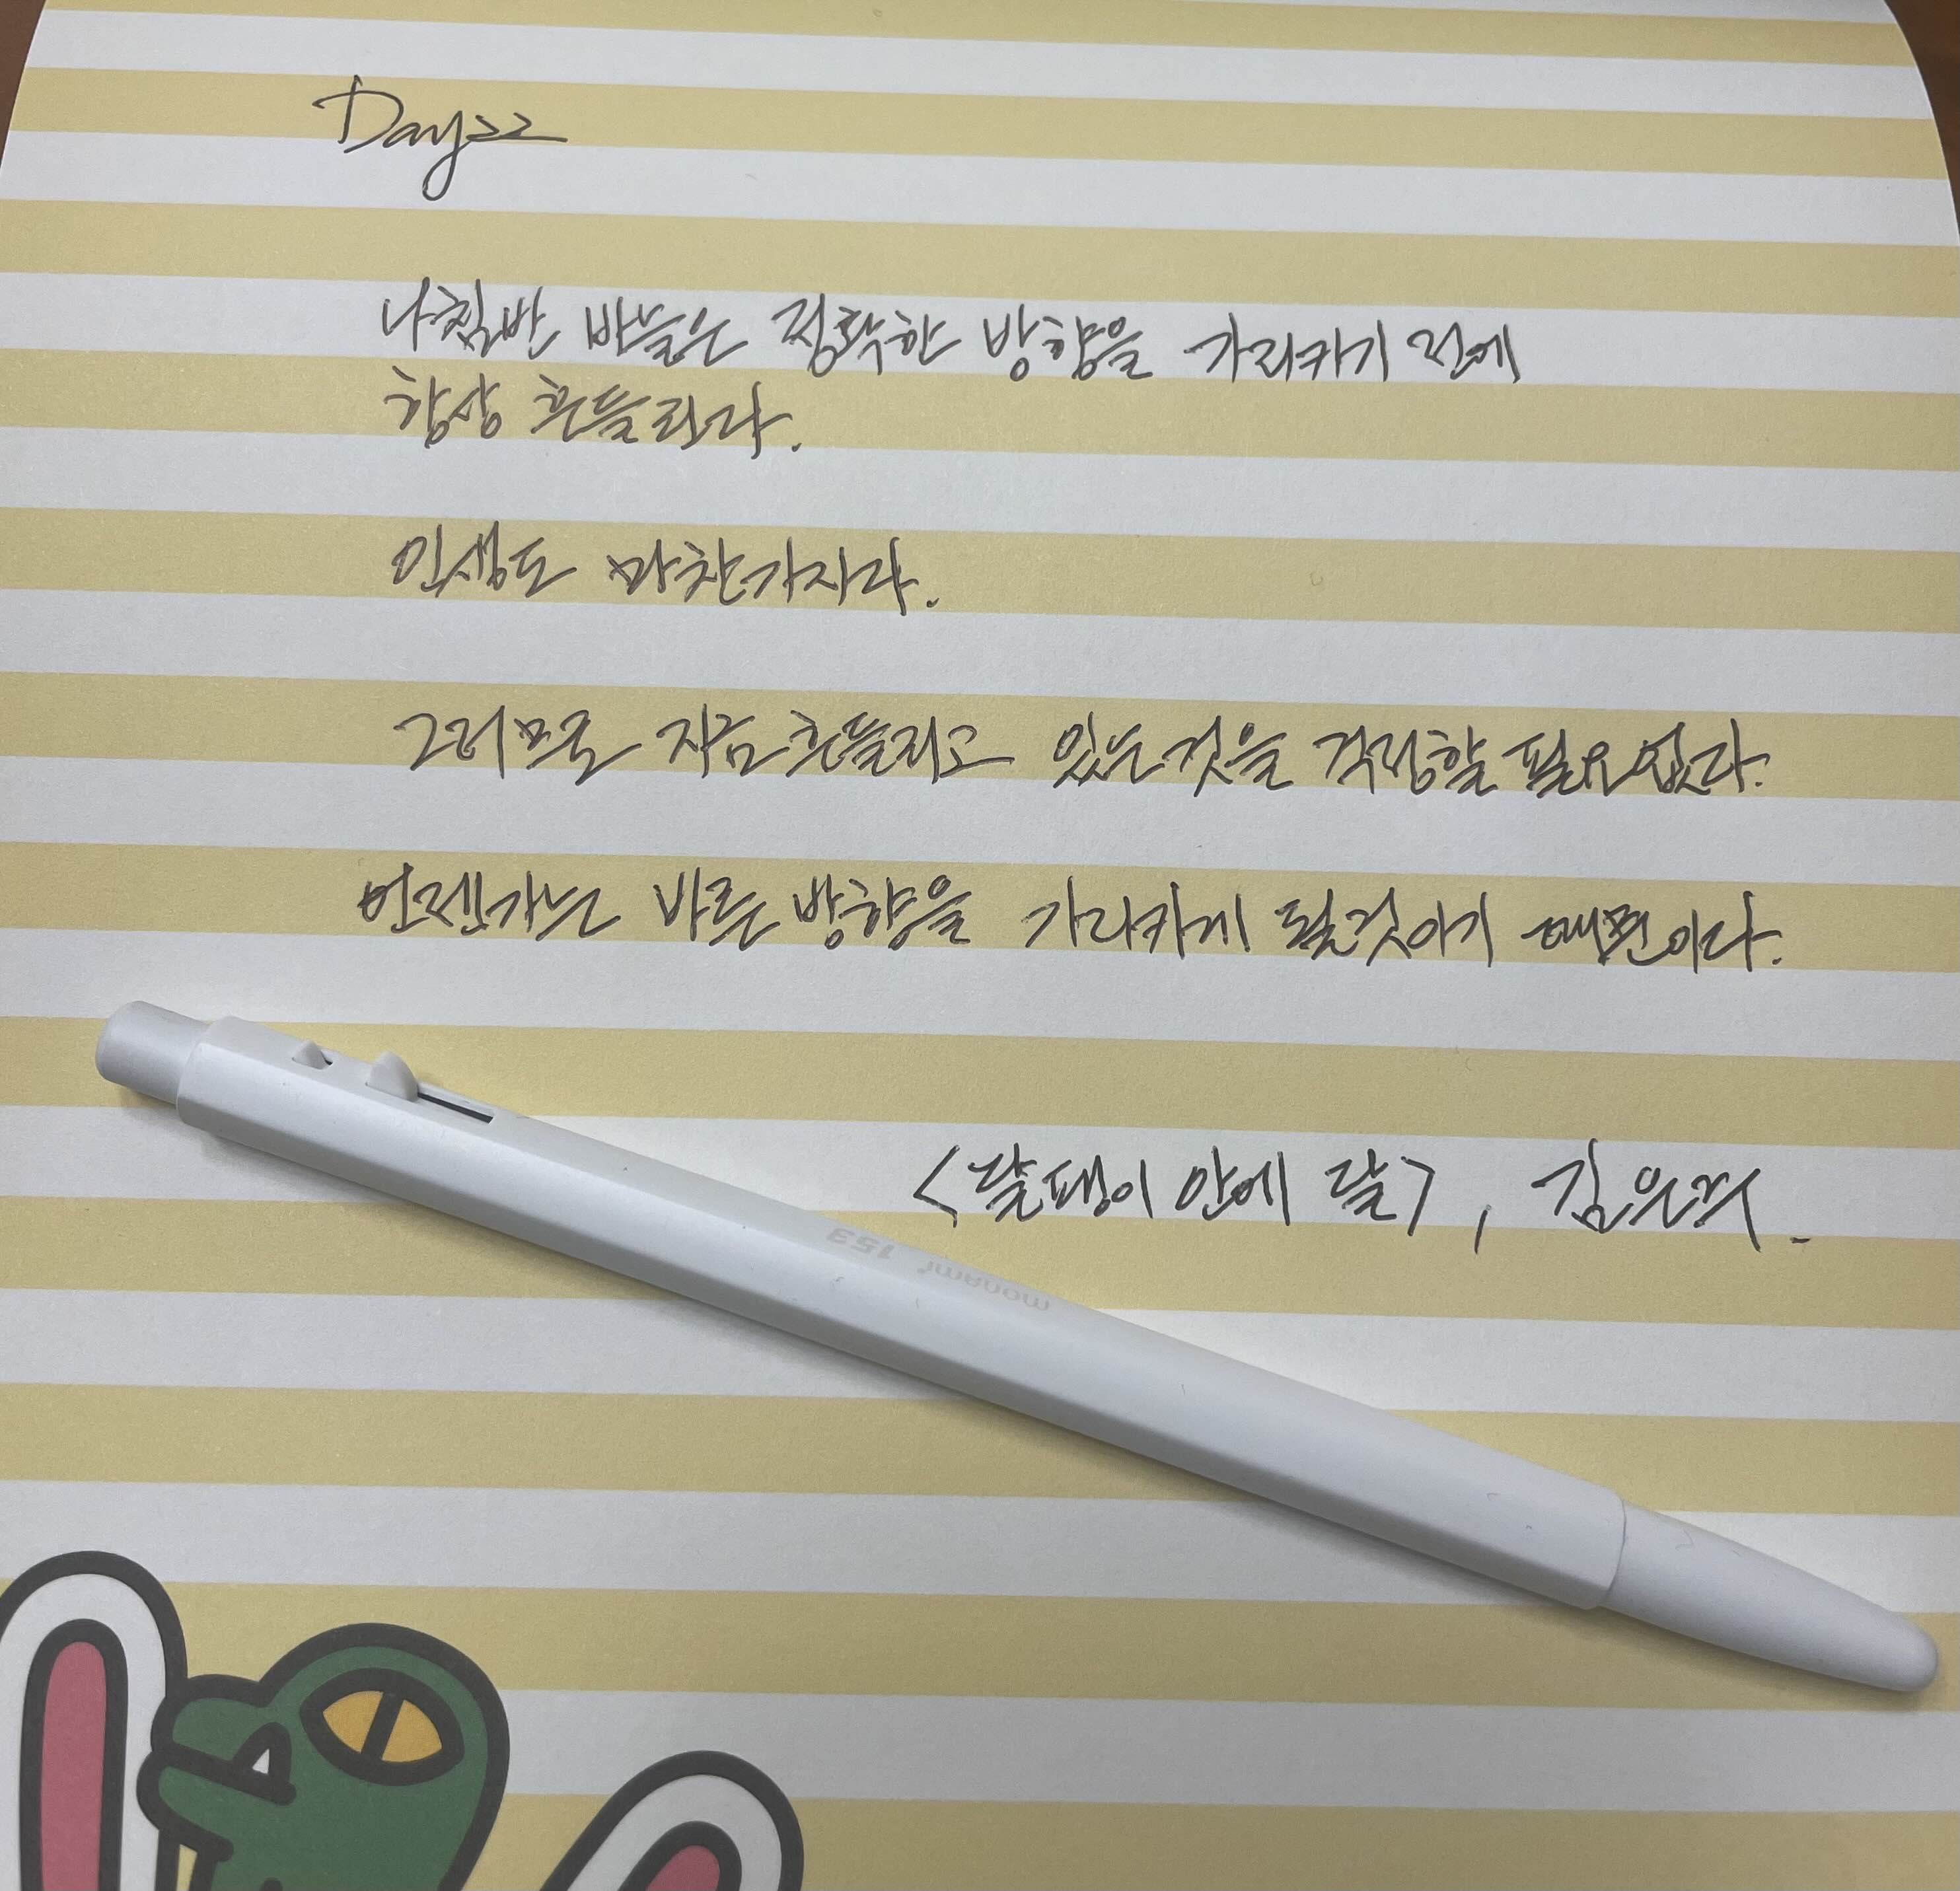 Day 22
나침반 바늘은 정확한 방향을 가리키기 전에
항상 흔들린다.
인생도 마찬가지다.
그러므로 지금 흔들리고 있는것을 걱정할 필요없다.
언젠가는 바른 방향을 가리키게 될것이기 때문이다.
<달팽이 안에 달>, 김은주.
monami 153